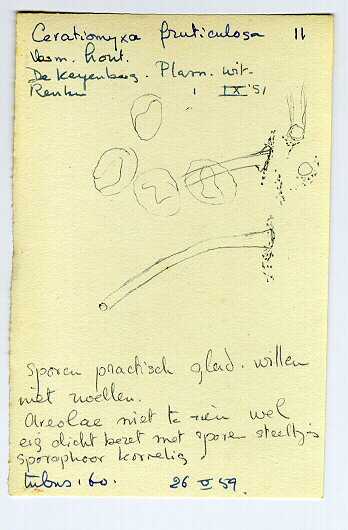 Ceratiomyxa fruticulosa 11
Verm. hout.
De Keyenberg. Plasm. wit.
Renkum 1 IX '51
Sporen practisch glad. willen
niet zwellen.
Areolae niet te zien wel
erg dicht bezet met sporen steeltjes
sporophoor korrelig
tubus. 60. 26 VI 59.